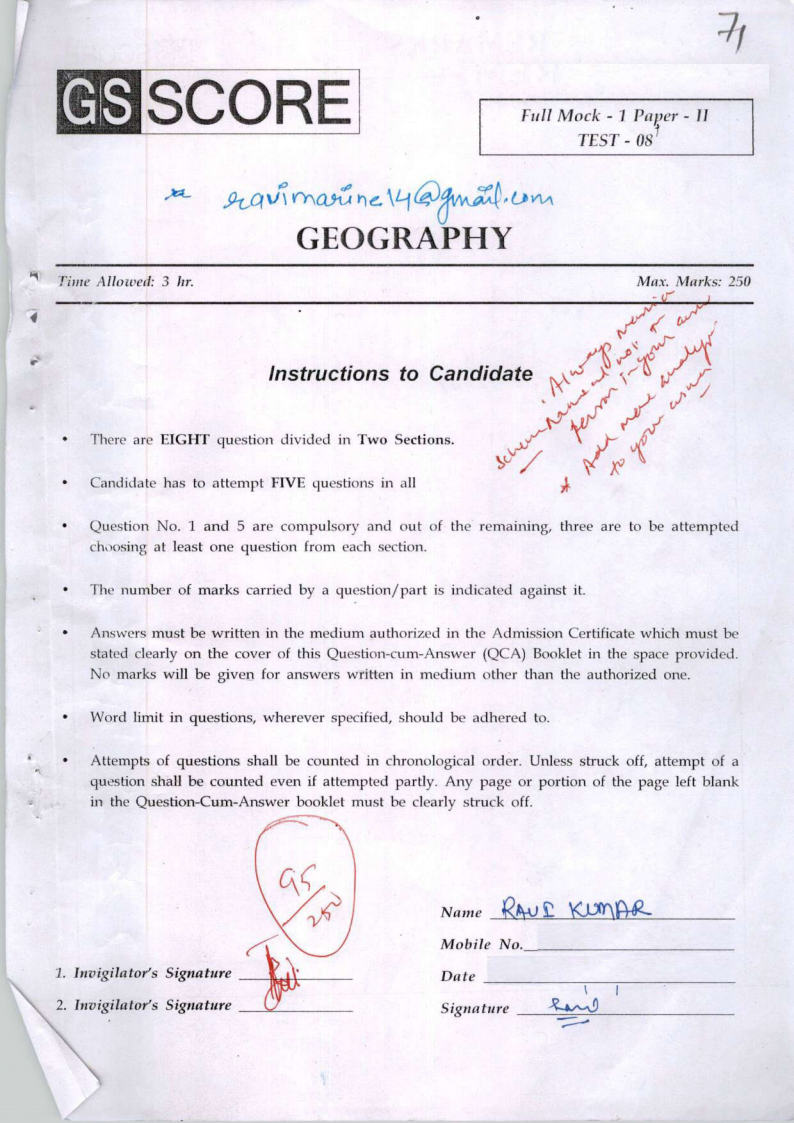 71
GS SCORE
Full Mock - 1 Paper - II
TEST - 08
ravimarine14@gmail.com
GEOGRAPHY
Time Allowed: 3 hr.
Max. Marks: 250
Instructions to Candidate
Always
name and not
person in your
* Add more
to your
• There are EIGHT question divided in Two Sections.
• Candidate has to attempt FIVE questions in all
• Question No. 1 and 5 are compulsory and out of the remaining, three are to be attempted
choosing at least one question from each section.
• The number of marks carried by a question/part is indicated against it.
• Answers must be written in the medium authorized in the Admission Certificate which must be
stated clearly on the cover of this Question-cum-Answer (QCA) Booklet in the space provided.
No marks will be given for answers written in medium other than the authorized one.
• Word limit in questions, wherever specified, should be adhered to.
• Attempts of questions shall be counted in chronological order. Unless struck off, attempt of a
question shall be counted even if attempted partly. Any page or portion of the page left blank
in the Question-Cum-Answer booklet must be clearly struck off.
95/250
Name RAVI KUMAR
Mobile No.
1. Invigilator's Signature
Date
2. Invigilator's Signature
Signature Ravi